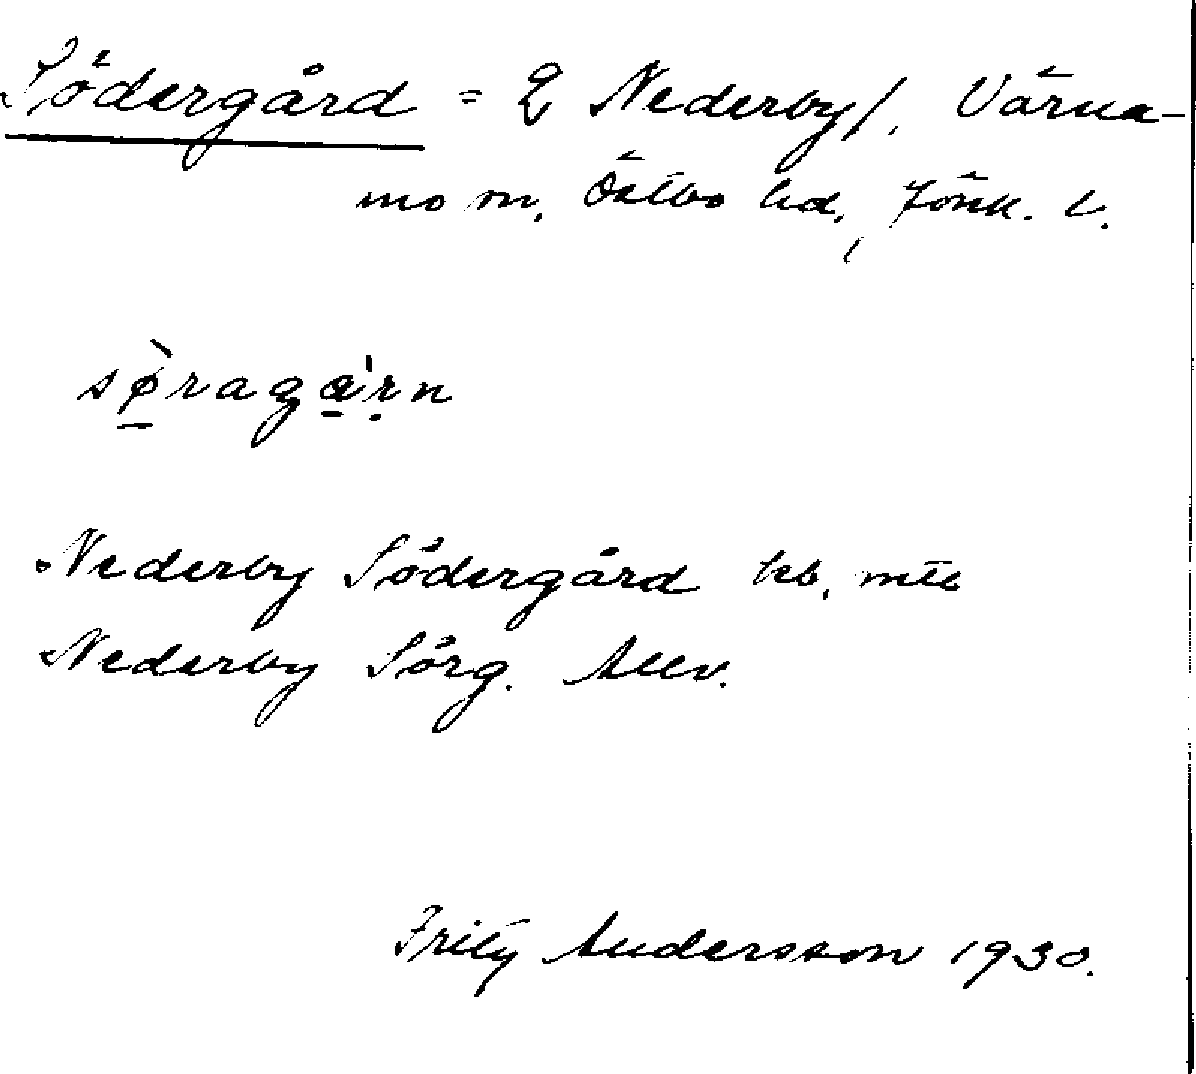 Södergård = 2 Nederby/. Värna-
mo sn, Östbo hd, Jönk. l.
sø̠̀raga̠'ṛn
Nederby Södergård kb, mtl
Nederby Sörg.
Fritz Andersson 1930.